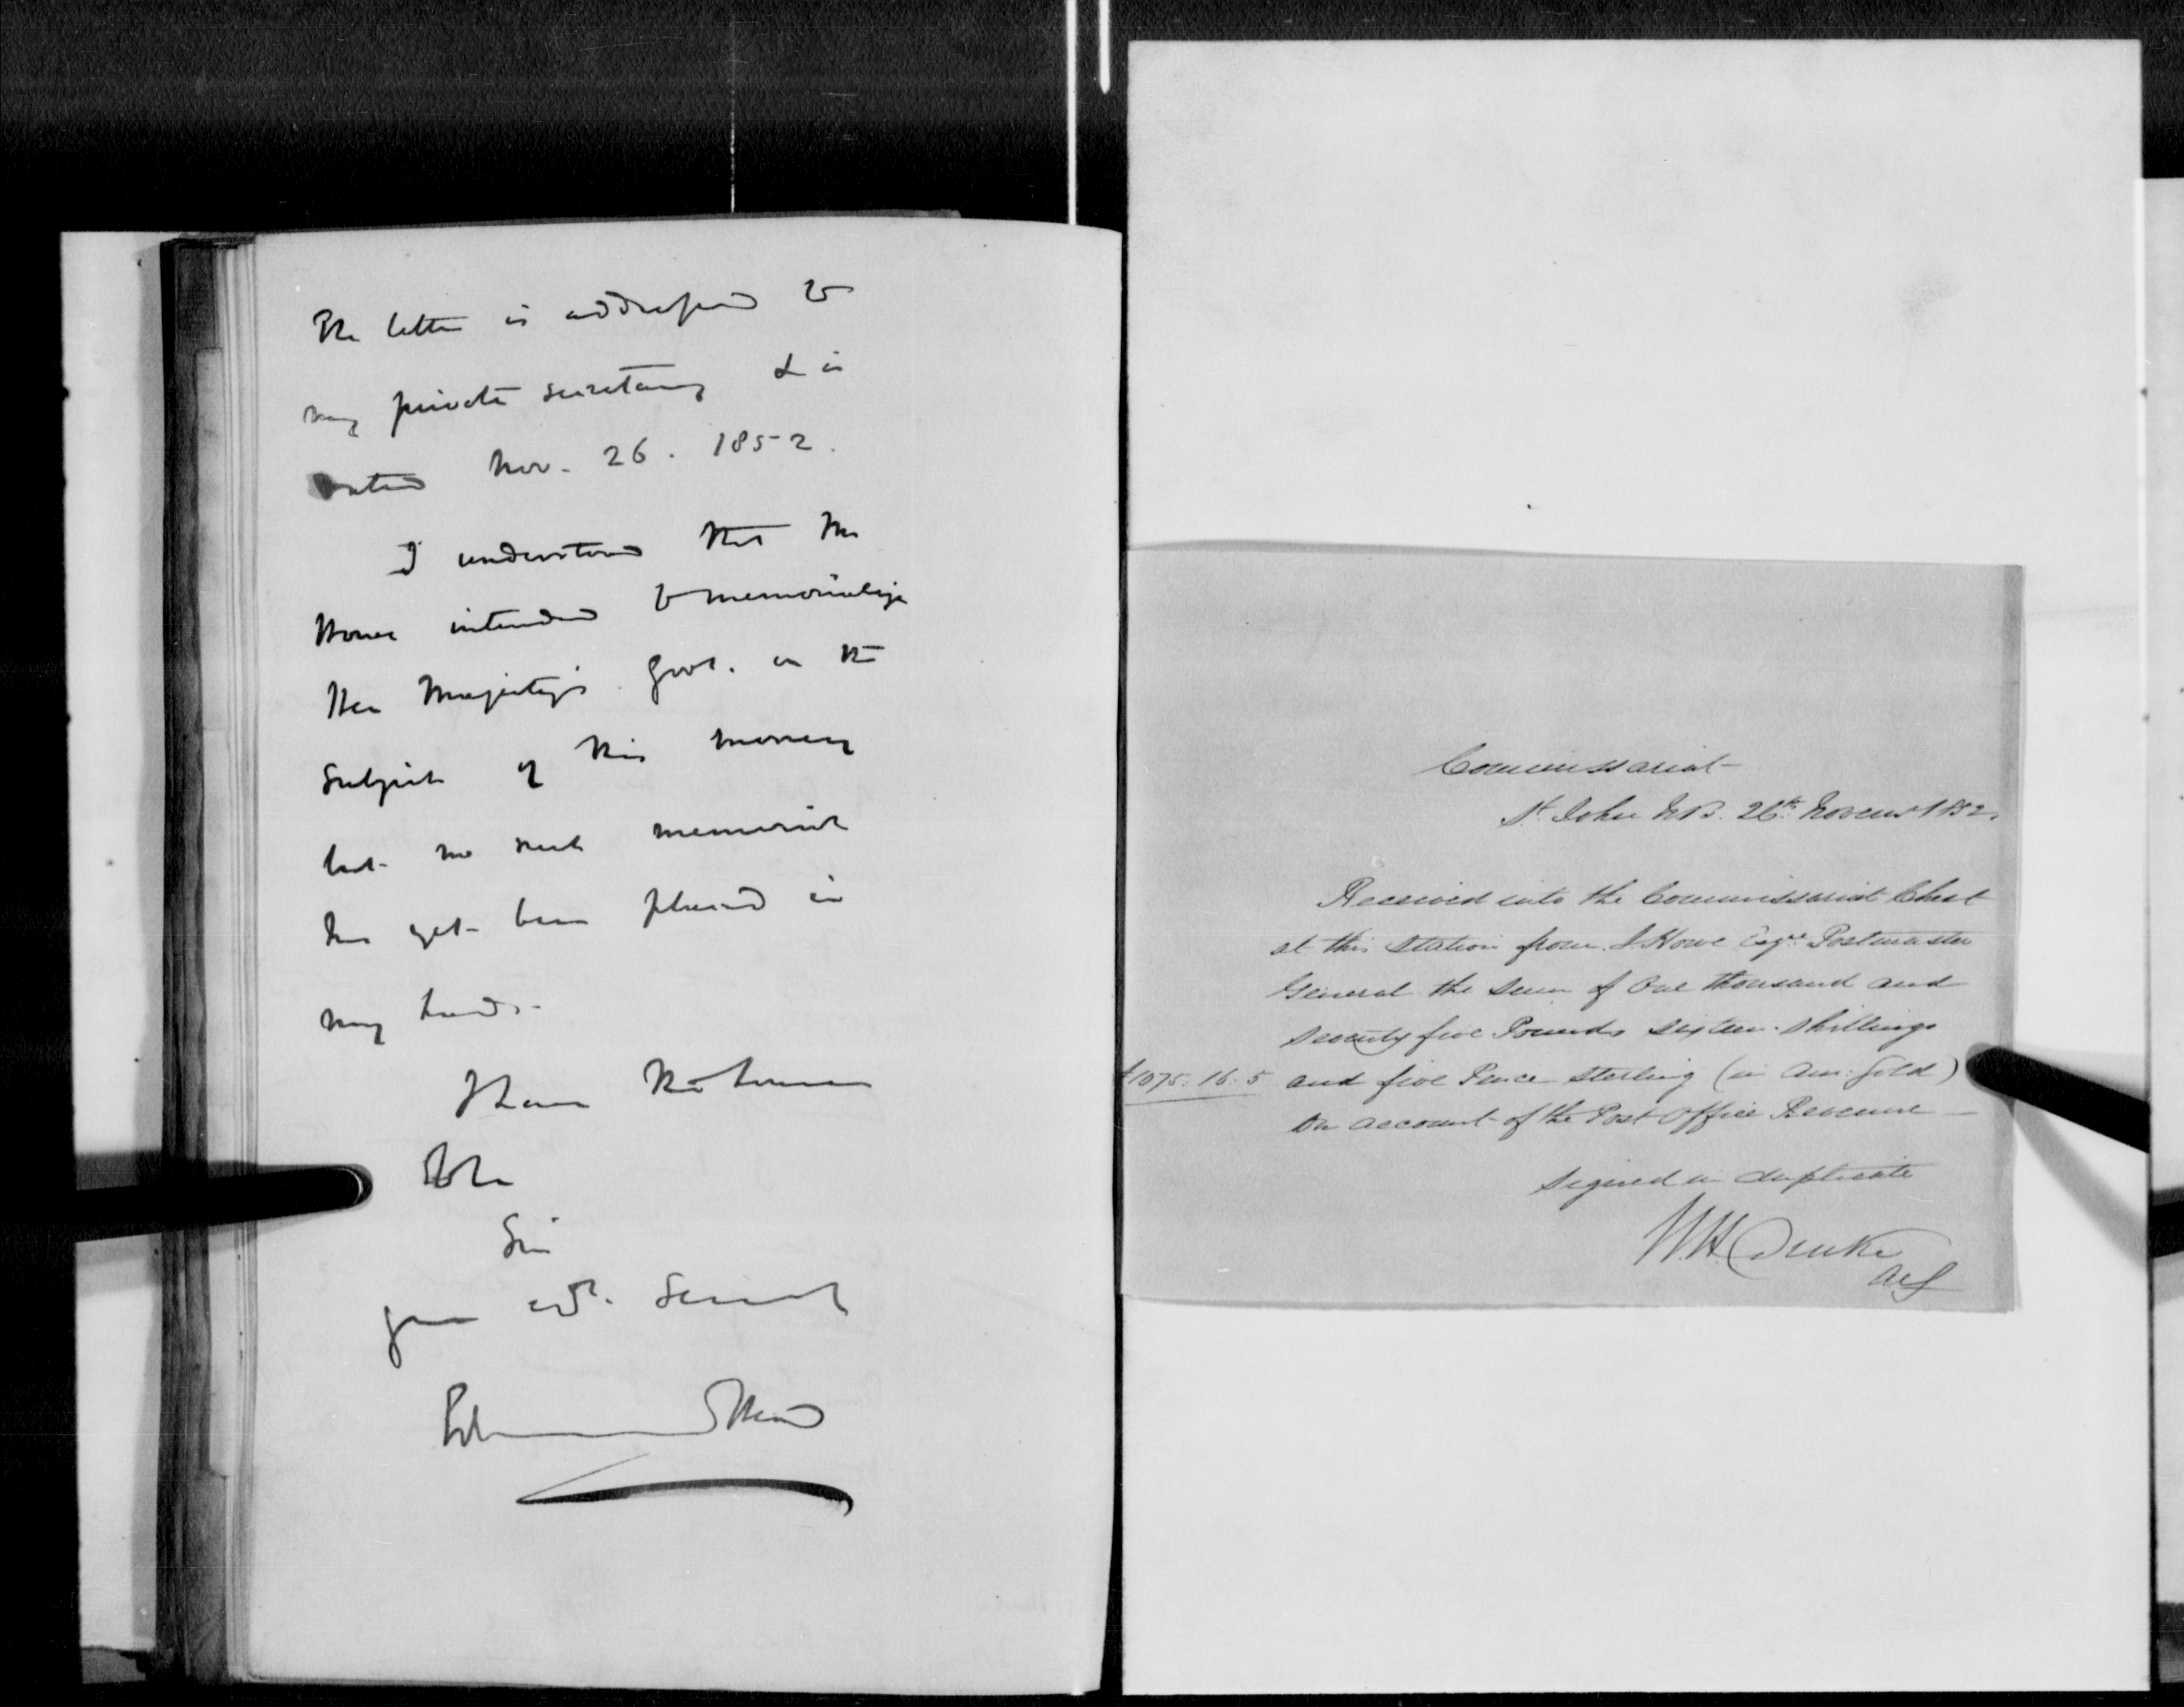 The letter is addressed to
my private secretary & is
dated Nov. 26. 1852.
I understand that Mr
Howe intended to memorialize
Her Majesty's Govt. on the
subject of this money
but no such memorial
has yet been placed in
my hands.
I have the honor
to be
Sir
your obt. Servant
Edmund Head
Commissariat
St. John N.B. 26th Novemr 1852.
Received into the Commissariat Chest
at this Station from J. Howe Esqre Postmaster
General the Sum of One thousand and
Seventy five Pounds Sixteen Shillings
£1075. 16. 5 and five Pence Sterling (in Am: Gold)
On account of the Post Office Revenue
Signed in duplicate
W.H. Drake